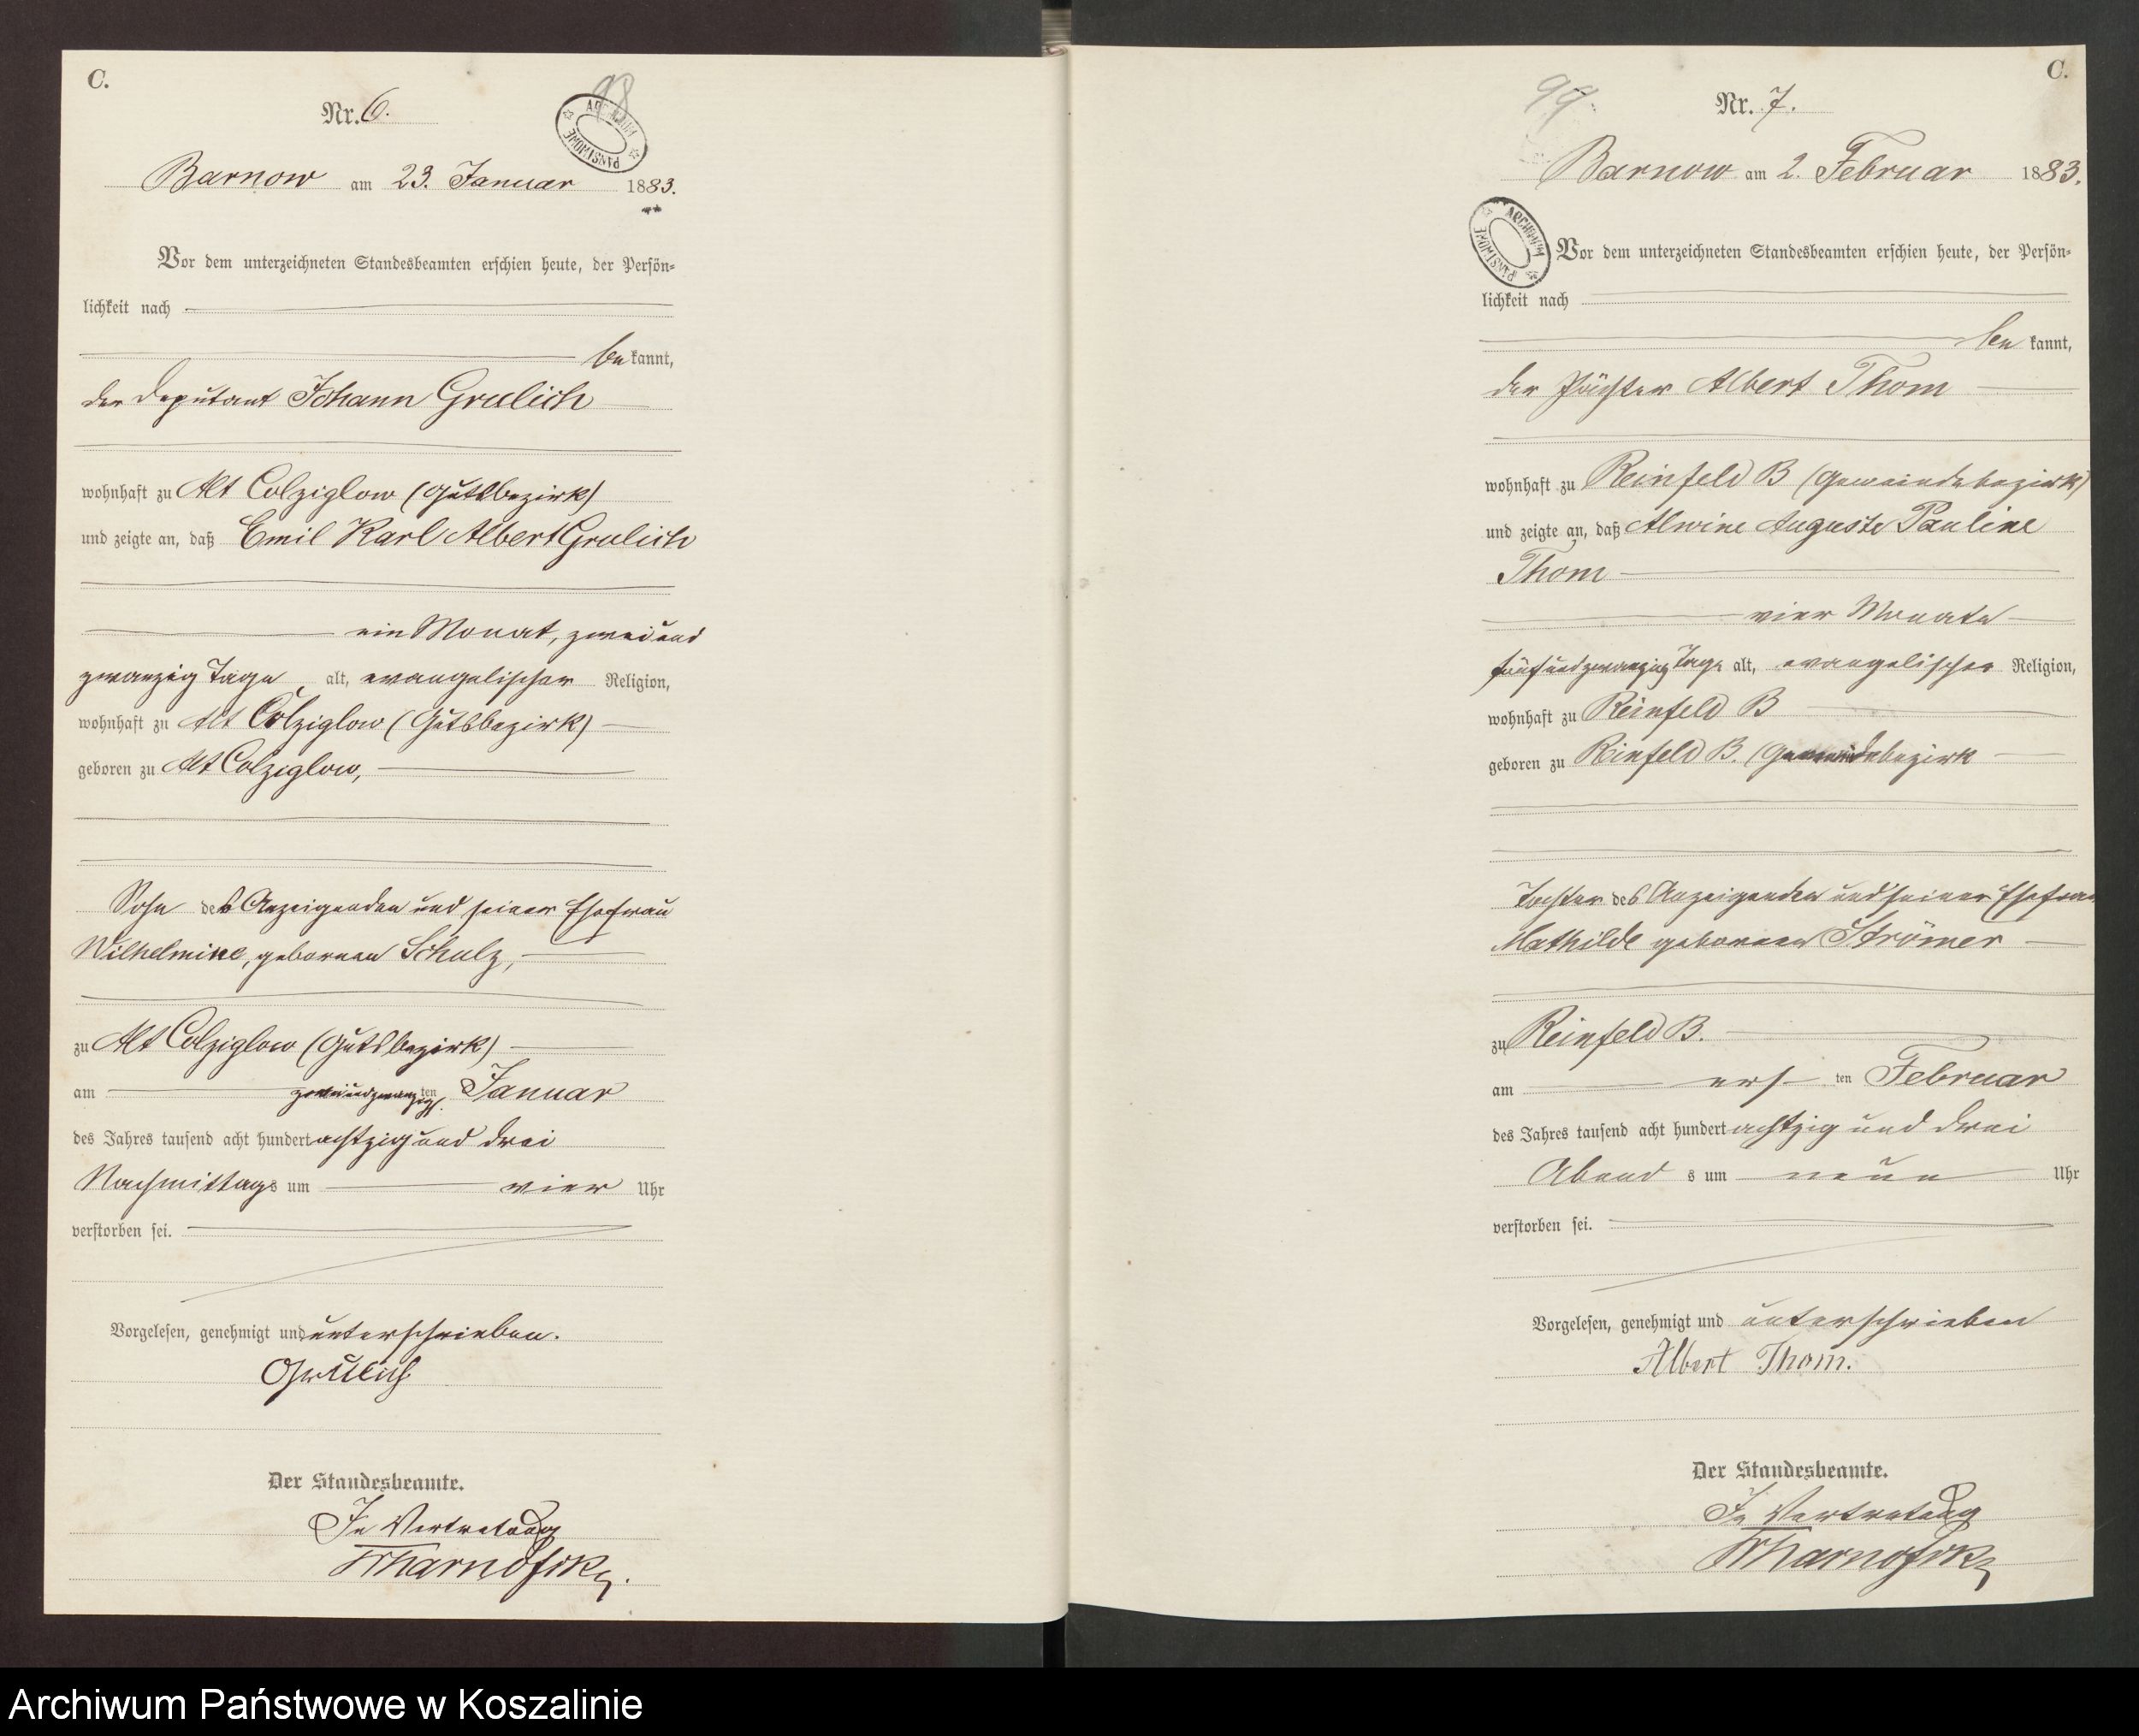 C.
98
Nr. 6.
ARCHIWUM PAŃSTWOWE
Barnow am 23. Januar 1883.
Vor dem unterzeichneten Standesbeamten erschien heute, der Persön-
lichkeit nach
be kannt,
der Deputant Johann Grulich
wohnhaft zu Alt Colziglow (Gutsbezirk)
und zeigte an, daß Emil Karl Albert Grulich
ein Monat, zwei und
zwanzig Tage alt, evangelischer Religion,
wohnhaft zu Alt Colziglow (Gutsbezirk)
geboren zu Alt Colziglow,
Sohn des Anzeigenden und seiner Ehefrau
Wilhelmine, geborenen Schulz,
zu Alt Colziglow (Gutsbezirk)
am zweiundzwanzigs ten Januar
des Jahres tausend acht hundert achtzig und drei
Nachmittags um vier Uhr
verstorben sei.
Vorgelesen, genehmigt und unterschrieben.
Grulich
Der Standesbeamte.
In Vertretung
C.
99.
Nr. 7.
Barnow am 2. Februar 1883.
ARCHIWUM PAŃSTWOWE
Vor dem unterzeichneten Standesbeamten erschien heute, der Persön-
lichkeit nach
be kannt,
der Pächter Albert Thom
wohnhaft zu Reinfeld B (Gemeindebezirk)
und zeigte an, daß Alwine Auguste Pauline
Thom
vier Monate
fünfundzwanzig Tage alt, evangelischer Religion,
wohnhaft zu Reinfeld B
geboren zu Reinfeld B. (Gemeindebezirk
Tochter des Anzeigenden und seiner Ehefrau
Mathilde geborenen Strömer
zu Reinfeld B.
am ers ten Februar
des Jahres tausend acht hundert achtzig und drei
Abend s um neun Uhr
verstorben sei.
Vorgelesen, genehmigt und unterschrieben
Albert Thom.
Der Standesbeamte.
In Vertretung
Archiwum Państwowe w Koszalinie